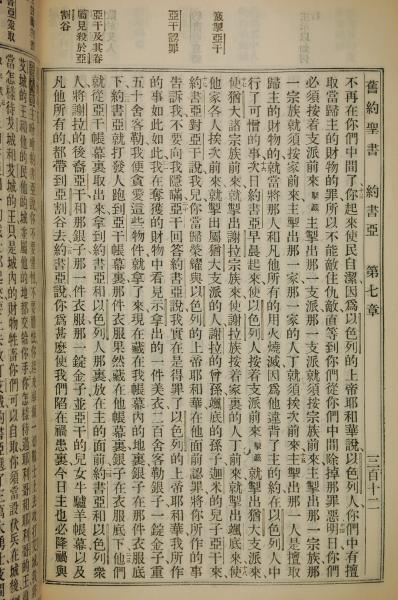 舊約聖書 約書亞 第七章 三百十二
不再在你們中間了你起來使民自潔因爲以色列的上帝耶和華說以色列人你們中有擅
取當歸主的財物的罪所以不能敵住仇敵直等到你們從你們中間除掉那罪惡明日你們
必須按着支派前來掣籤主掣出那一支派那一支派就須按宗族前來主掣出那一宗族那
一宗族就須按家前來主掣出那一家那一家的人丁就須挨次前來主掣出那一人是擅取
歸主的財物的就當將那人和凡他所有的用火燒滅因爲他違背了主的約在以色列人中
行了可憎的事次日約書亞早晨起來使以色列人按着支派前來掣籤就掣出猶大支派來
使猶大諸宗族前來就掣出謝拉宗族來使謝拉族按着家裏的人丁前來就掣出颯底來使
他家各人挨次前來就掣出屬猶大支派的人謝拉的曾孫颯底的孫子迦米的兒子亞干來
約書亞對亞干說我兒你當歸榮耀與以色列的上帝耶和華在他面前認罪將你所作的事
告訴我不要向我隱瞞亞干回答約書亞說我實在是得罪了以色列的上帝耶和華我所作
的事如此如此我在奪獲的財物中看見示拿出的一件美衣二百舍客勒銀子一錠金子重
五十舍客勒我便貪愛這些物件就拿了來現在藏在我帳幕內的地裏銀子在那件衣服底
下約書亞就打發人跑到亞干帳幕裏那件衣服果然藏在他帳幕裏銀子在衣服底下他們
就從亞干帳幕裏取出來拿到約書亞和以色列人那裏放在主的面前約書亞和以色列衆
人將謝拉的後裔亞干和那銀子那一件衣服那一錠金子並亞干的兒女牛驢羊帳幕以及
凡他所有的都帶到亞割谷去約書亞說你爲甚麽使我們陷在禍患裏今日主也必降禍與
籤掣亞干
亞干認罪
亞干及其眷
屬見殺於亞
割谷